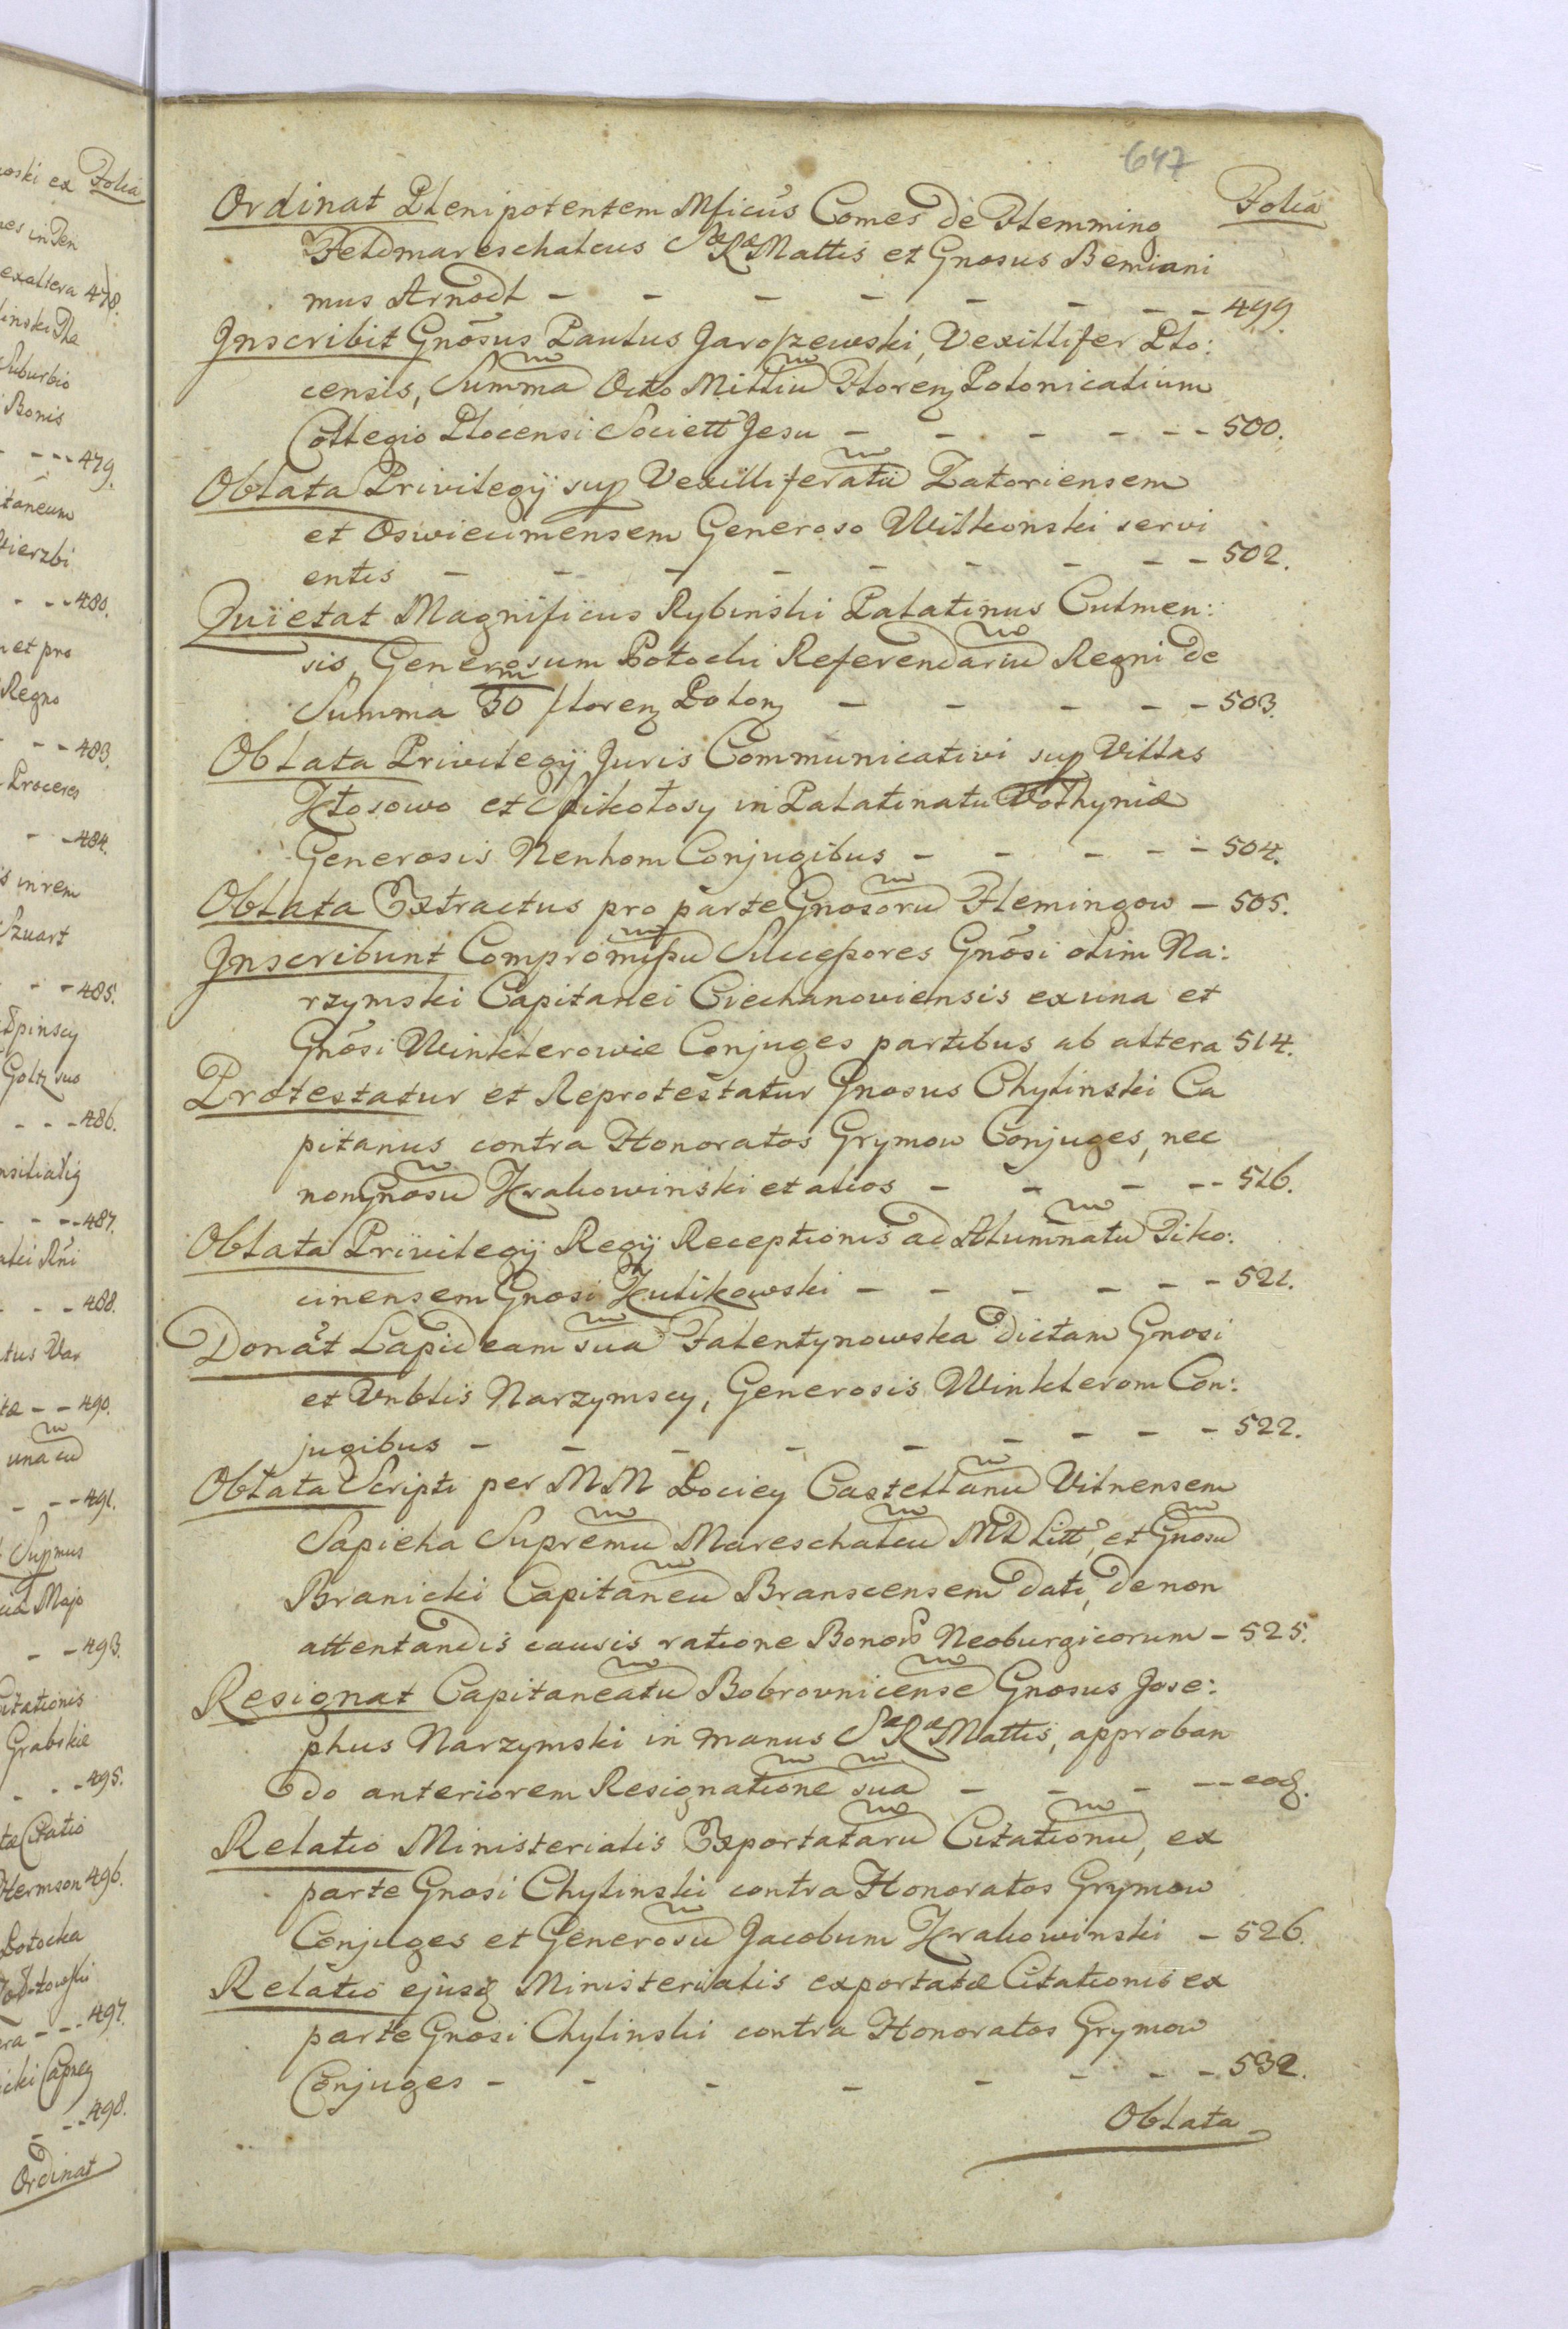 647
Folia
Ordinat Plenipotentem Mficus Comes de Flemming
Feldmareschalcus SæRæMattis et Gnosus Bemiani
mus Arnodt - - - - - - - - 499.
Inscribit Gnosus Paulus Jaroszewski, Vexillifer Plo:
censis, Summa Octo Milliu Floren Polonicalium
Collegio Plocensi Societt Jesu - - - - - - 500.
Oblata Privilegij sup Vexilliferatu Zatoriensem
et Oswiecimensem Generoso Wilkonski servi
entis - - - - - - - - - 502.
Quietat Magnificus Rybinski Palatinus Culmen:
sis, Generosum Potocki Referendariu Regni de
Summa 30 m floren Polon - - - - - 503.
Oblata Privilegij Juris Communicativi sup Villas
Kłosowo et Spikołosy in Palatinatu Volhyniæ
Generosis Nenhom Conjugibus - - - - - 504.
Oblata Extractus pro parte Gnosoru Flemingow - 505.
Inscribunt Compromissu Successores Gnosi olim Na:
rzymski Capitanei Ciechanoviensis ex una et
Gnosi Winklerowie Conjuges partibus ab altera 514.
Protestatur et Reprotestatur Gnosus Chylinski Ca
pitanus contra Honoratos Grymow Conjuges, nec
non Gnosu Krakowinski et alios - - - - - 516.
Oblata Privilegij Regij Receptionis ad Alumnatu Tiko:
cinensem Gnosi Kulikowski - - - - - - 521.
Donat Lapideam sua Falentynowska dictam Gnosi
et Vnblis Narzymscy, Generosis Winklerom Con:
jugibus - - - - - - - - - 522.
Oblata Scripti per MM Pociey Castellanu Vilnensem
Sapieha Supremu Mareschalcu MD Litt, et Gnosu
Branicki Capitaneu Branscensem dati, de non
attentandis causis ratione Bonor Neoburgicorum - 525.
Resignat Capitaneatu Bobrovnicense Gnosus Jose:
phus Narzymski in manus SæRæMattis, approban
do anteriorem Resignatione sua - - - - - eod.
Relatio Ministerialis Exportataru Citationu, ex
parte Gnosi Chylinski contra Honoratos Grymow
Conjuges et Generosu Jacobum Krakowinski - 526.
Relatio ejusd Ministerialis exportatæ Citationis ex
parte Gnosi Chylinski contra Honoratos Grymow
Conjuges - - - - - - - 532.
Oblata